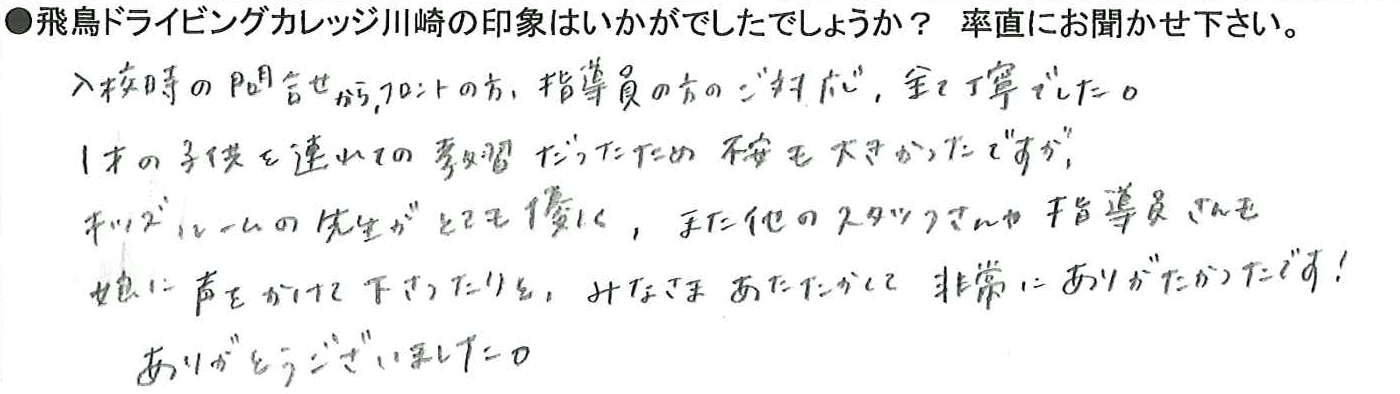 ●飛鳥ドライビングカレッジ川崎の印象はいかがでしたでしょうか? 率直にお聞かせ下さい。
入校時の問合せから,フロントの方、指導員の方のご対応、全て丁寧でした。
1才の子供を連れての教習だったため不安も大きかったですが、
キッズルームの先生がとても優しく、また他のスタッフさんや指導員さんも
娘に声をかけて下さったりと、みなさまあたたかくて非常にありがたかったです!
ありがとうございました。